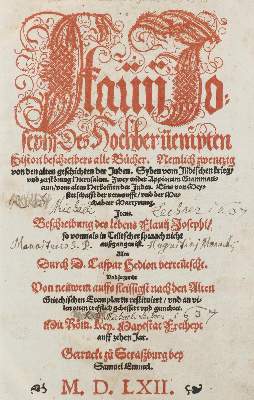 Flauij Jo=
sephi Des Hochberüempten
Histori beschreibers alle Bücher. Nemlich zwentzig
von den alten geschichten der Juden. Syben vom Jüdischen krieg/
vnd zerstörung Hierusalem. Zwen wider Appionem Grammati=
cum/ vom alten Herkommen der Juden. Eins von Mey=
sterschafft der vernunfft/ vnd der Ma=
chabeer Martyrung.
Item.
Beschreibung des lebens Flauij Josephi/
so vormals in Teütscher spraach nicht
außgangen ist.
Alles
Durch D. Caspar Hedion verteütscht.
Vnd jetzunder
Von neüwem auffs fleissigst nach dem Alten
Griechischen Exemplar restituiert/ vnd an vi=
len orten trefflich gebessert vnd gemehret.
1657
Mit Röm. Key. Mayestat Freyheyt
auff zehen Jar.
Getruckt zu Straßburg bey
Samuel Emmel.
M. D. LXII.